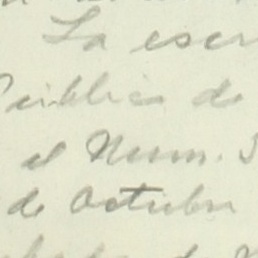 La escr
Publica de
el Num. 3
de Octubre